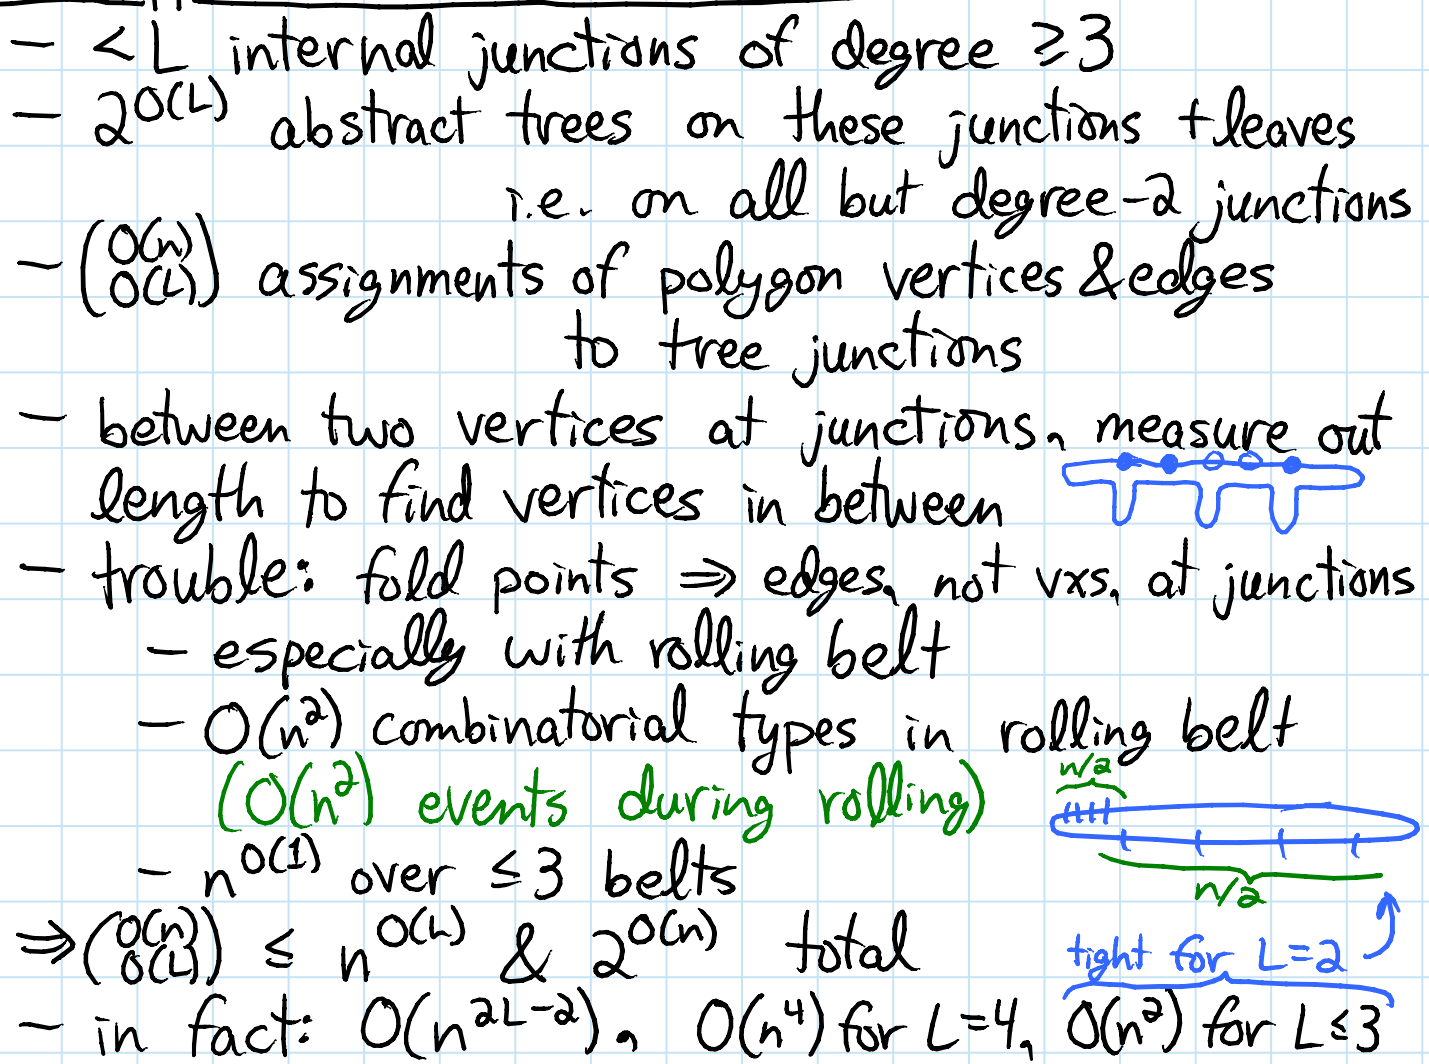 – < L internal junctions of degree ≥ 3
– 2^O(L) abstract trees on these junctions + leaves
i.e. on all but degree-2 junctions
– (O(n) O(L)) assignments of polygon vertices & edges
to tree junctions
– between two vertices at junctions, measure out
length to find vertices in between
– trouble: fold points ⇒ edges, not vxs, at junctions
– especially with rolling belt
– O(n²) combinatorial types in rolling belt
(O(n²) events during rolling)
n/2
– n^O(1) over ≤ 3 belts
n/2
⇒ (O(n) O(L)) ≤ n^O(L) & 2^O(n) total
tight for L=2
– in fact: O(n^2L-2), O(n⁴) for L=4, O(n²) for L≤3